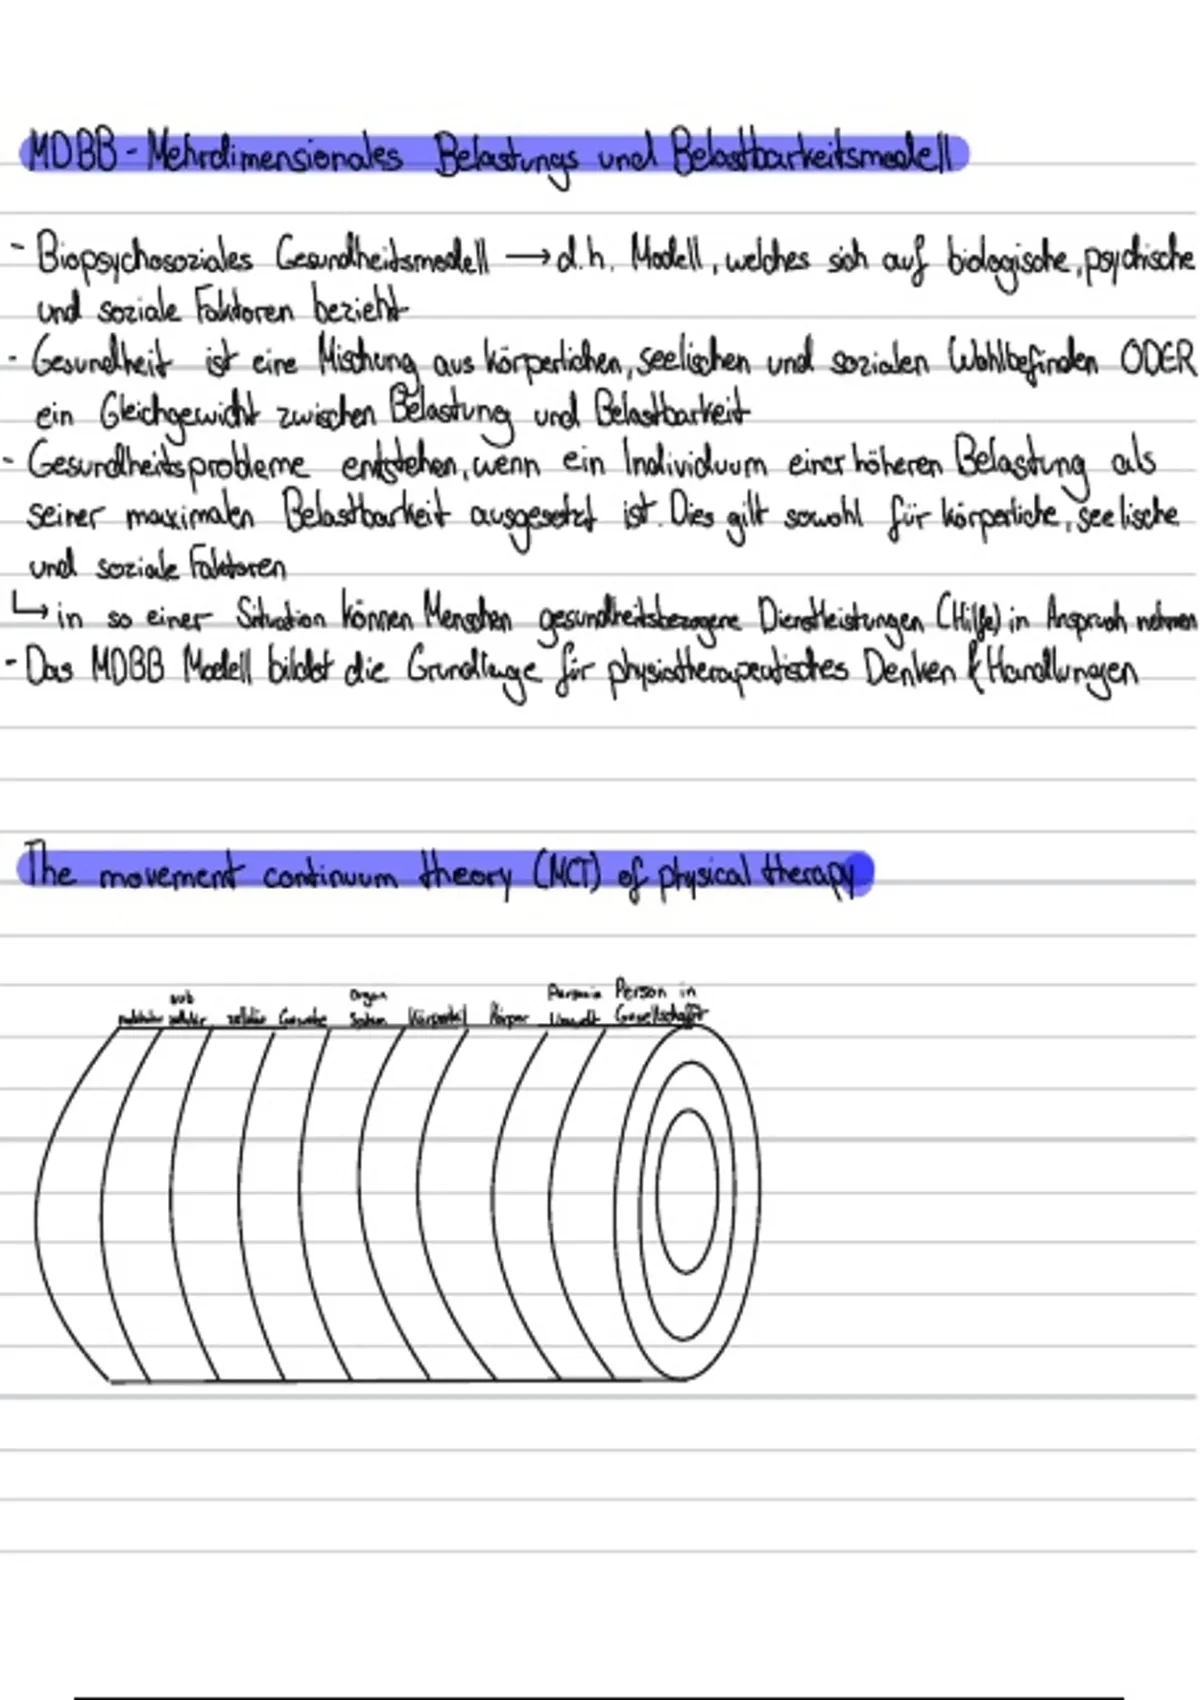 MDBB - Mehrdimensionales Belastungs und Belastbarkeitsmodell
- Biopsychosoziales Gesundheitsmodell → d.h. Modell, welches sich auf biologische, psychische
und soziale Faktoren bezieht
- Gesundheit ist eine Mischung aus körperlichen, seelischen und sozialen Wohlbefinden ODER
ein Gleichgewicht zwischen Belastung und Belastbarkeit
- Gesundheitsprobleme entstehen, wenn ein Individuum einer höheren Belastung als
seiner maximalen Belastbarkeit ausgesetzt ist. Dies gilt sowohl für körperliche, seelische
und soziale Faktoren
↳ in so einer Situation können Menschen gesundheitsbezogene Dienstleistungen (Hilfe) in Anspruch nehmen
- Das MDBB Modell bildet die Grundlage für physiotherapeutisches Denken & Handlungen
The movement continuum theory (MCT) of physical therapy
sub Organ Person in Person in
zellulär zellulär Gewebe System Körperteil Körper Umwelt Gesellschaft